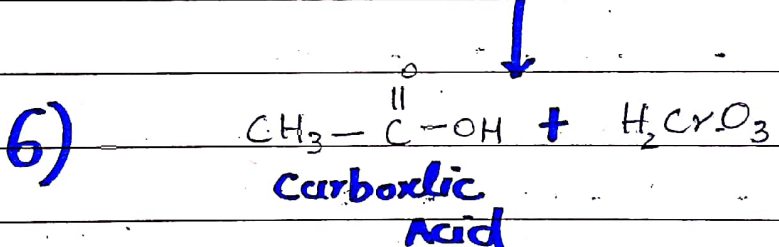 O
||
6) CH₃ – C – OH + H₂CrO₃
Carboxlic
Acid